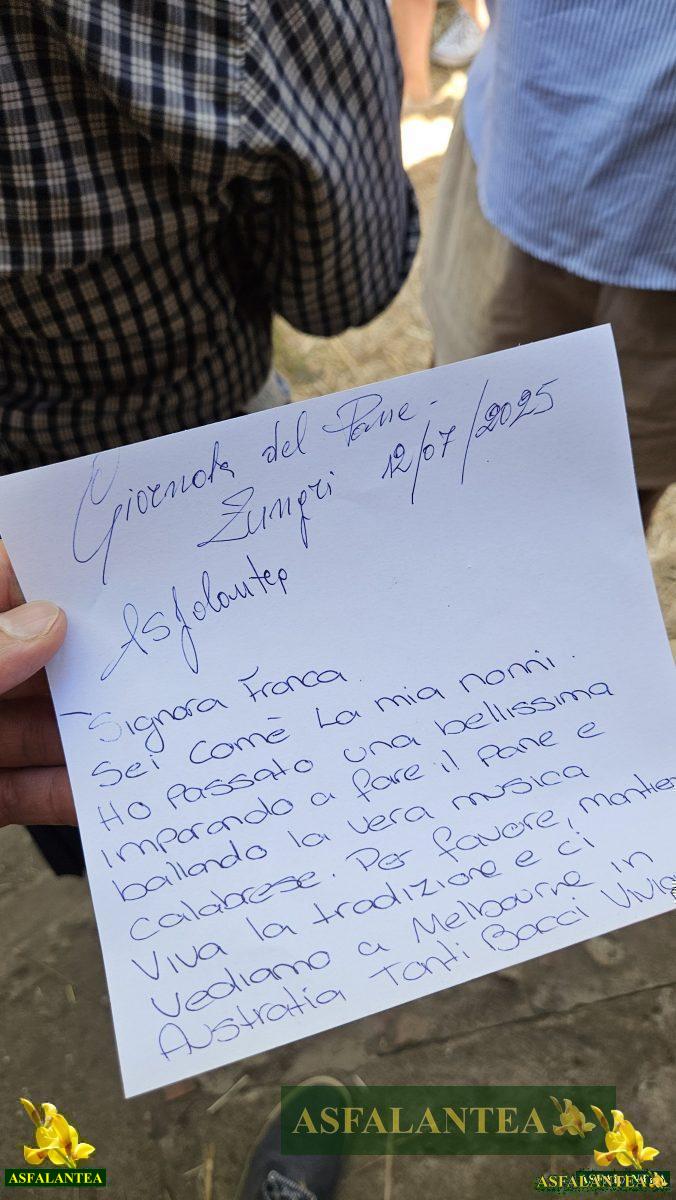 Giornata del Pane -
Zungri 12/07/2025
Asfalantea
Signora Franca
Sei come La mia nonni.
Ho passato una bellissima
imparando a fare il pane e
ballando la vera musica
calabrese. Per favore, mantie
viva la tradizione e ci
vediamo a Melbourne in
Australia Tanti Bacci Vivia
ASFALANTEA
ASFALANTEA
ASFALANTEA